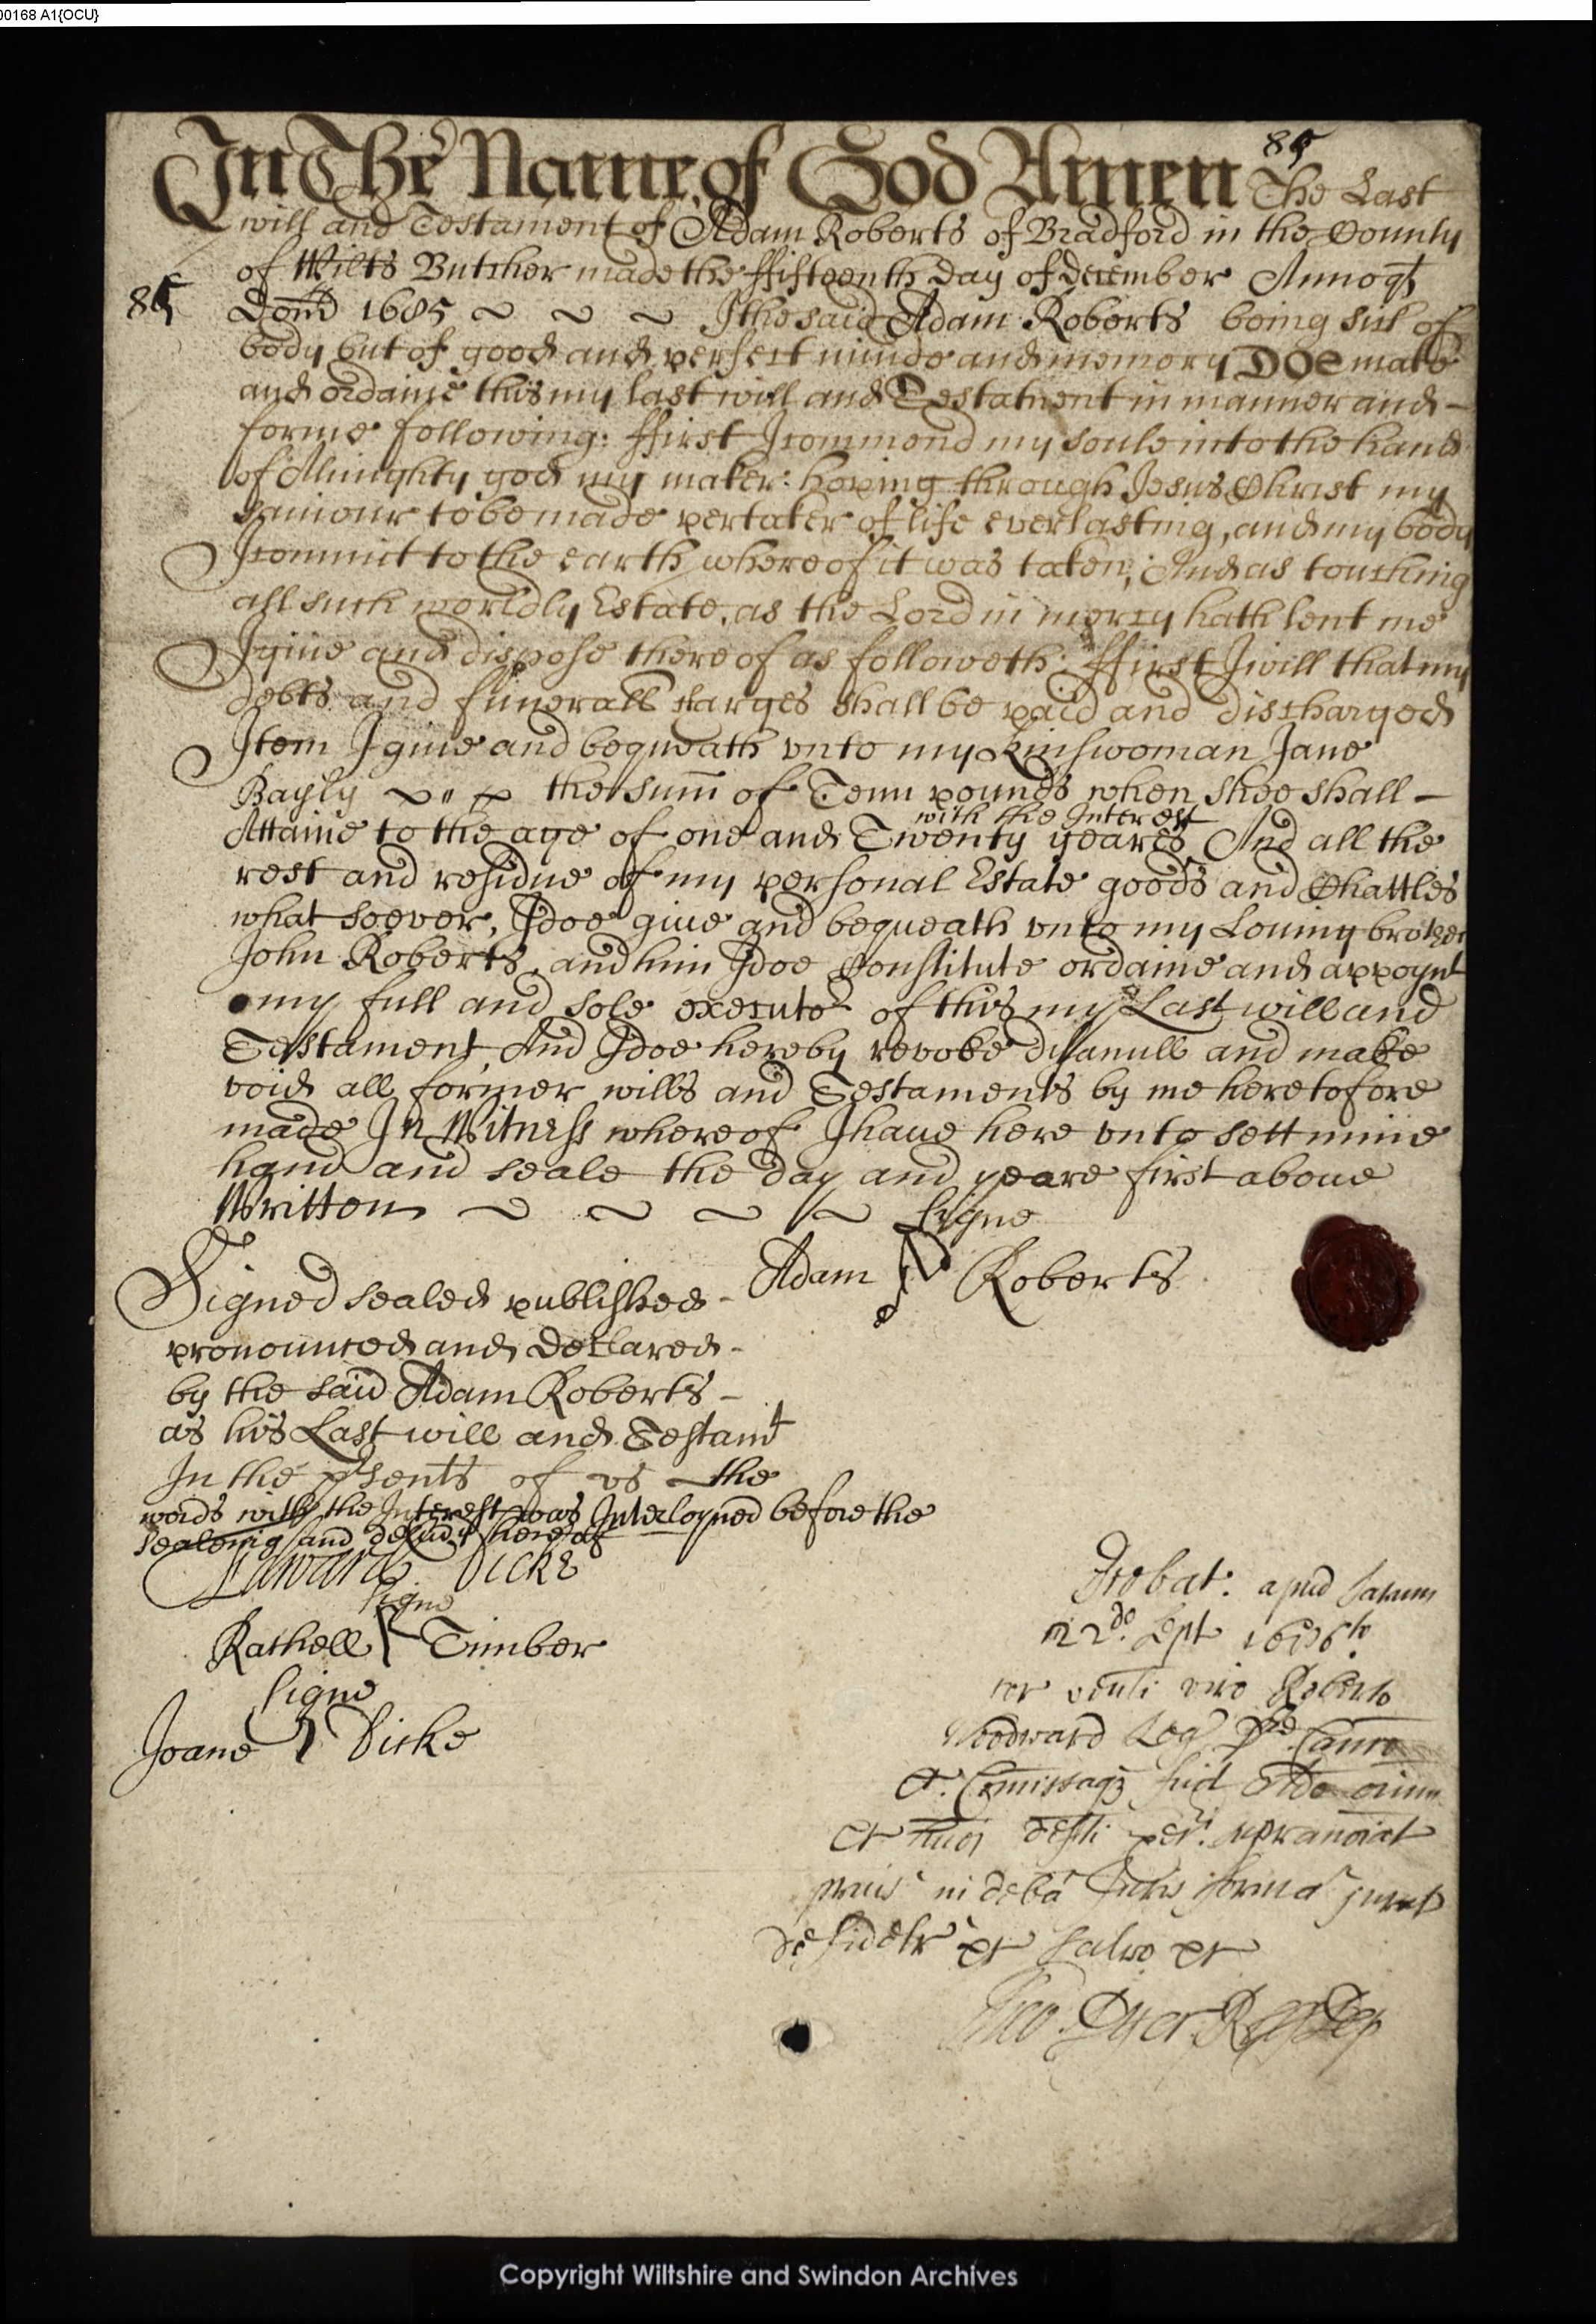 00168 A1{OCU}
85
In The Name of God Amen The Last
will and Testament of Adam Roberts of Bradford in the County
of Wilts Butcher made the ffifteenth Day of December Annoqs
85
Dom 1685 ~ ~ ~ I the said Adam Roberts being sick of
body but of good and perfect minde and memory DOe make
and ordaine this my last will and Testament in manner and -
forme following: ffirst I commend my soule into the hands
of Almighty god my maker: hoping through Jesus Christ my
saviour to be made pertaker of life everlasting, and my body
I commit to the earth whereof it was taken; And as touching
all such worldly Estate, as the Lord in mercy hath lent me
I giue and dispose thereof as followeth: ffirst I will that my
debts and funerall charges shall be paid and discharged
Item I giue and bequeath vnto my kinswoman Jane
Bayly the sum of Tenn pounds when shee shall -
with the Interest
Attaine to the age of one and Twenty yeares And all the
rest and residue of my personal Estate goods and Chattles
what soever, I doe giue and bequeath vnto my Louing brother
John Roberts, and him I doe Constitute ordaine and appoynt
my full and sole executor of this my Last will and
Testament, And I doe hereby revoke disanull and make
void all former wills and Testaments by me heretofore
made In Witness whereof I haue here vnto sett mine
hand and seale the day and yeare first aboue
Written ~ ~ ~ ~ Signe
Adam Roberts
Signed sealed published -
pronounced and Declared -
by the said Adam Roberts -
as his Last will and Testamt
In the psents of vs the
words with the Interest was Interloyned before the
sealeing and delivy hereof
Edward Dicke
Signe
Rachell Timber
Signe
Joane Dicke
Probat. apud Sarum
22do. Sept 1686to.
cor venli viro Roberto
Woodward Leg Dre
et
jurat
de fidelr et salvo et
Copyright Wiltshire and Swindon Archives